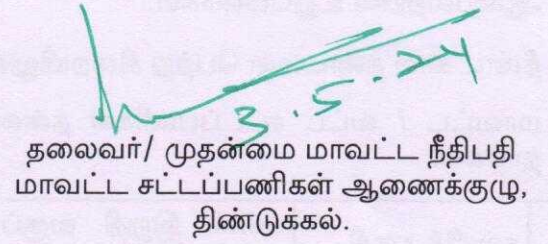 3.5.24
தலைவர்/ முதன்மை மாவட்ட நீதிபதி
மாவட்ட சட்டப்பணிகள் ஆணைக்குழு,
திண்டுக்கல்.